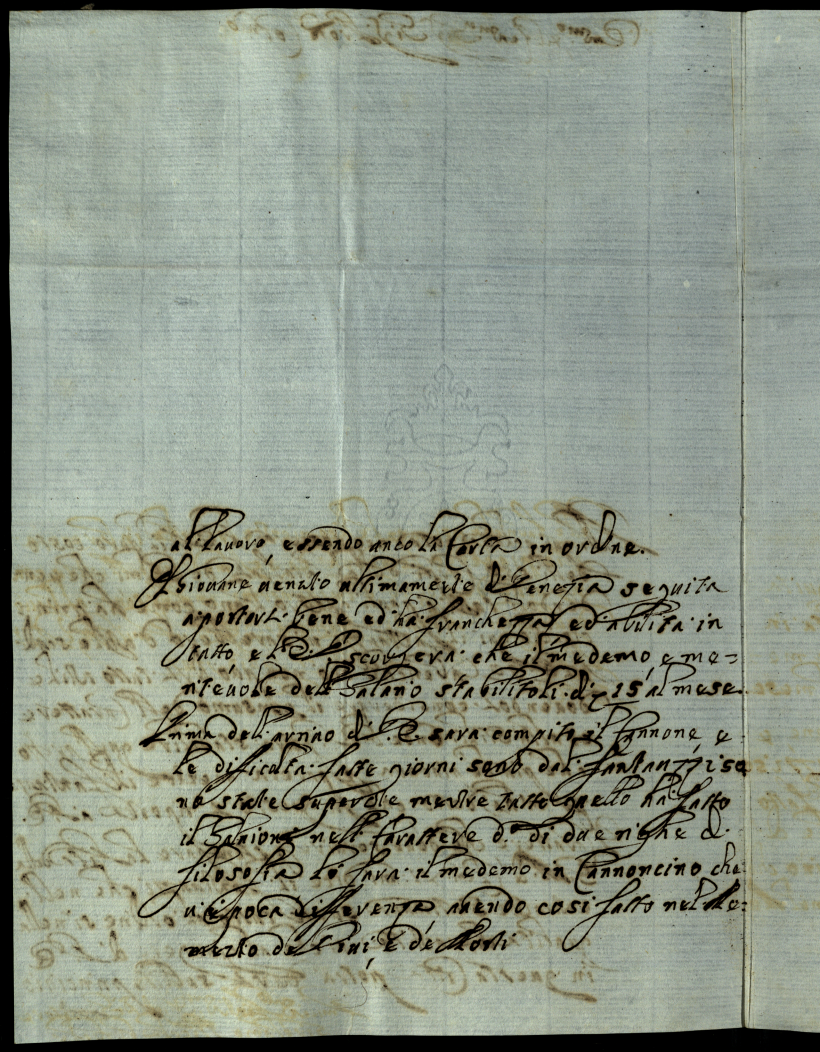 al lavoro essendo anco la Carta in ordine.
Il Giovane venuto ultimamente di Venezia seguita
a portarsi bene ed ha franchezza ed abilità in
tutto e V.S. scorgerà che il medemo è me=
ritevole del Salario stabilitoli di 15 al mese
Prima del arrivo di V.S. sarà compito il Cannone e
le dificoltà fatte giorni sono dal Santanzi so
no state superate mentre tutto quello ha fatto
il Salvioni nell Carattere d.º di due righe di
filosofia lo farà il medemo in Cannoncino che
vi è poca differenza avendo così fatto nel Me=
mento de Vivi e de Morti